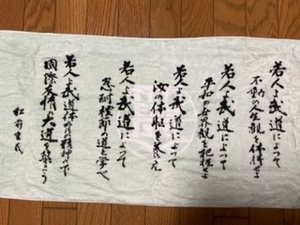 若人よ武道によって
不動の人生観を体得せよ
若人よ武道によって
平和の世界観を把握せよ
若人よ武道によって
汝の体躯を養え
若人よ武道によって
忍耐謙譲の道を学べ
若人よ武道体得の精神で
国際友情の大道を築こう
松前重義